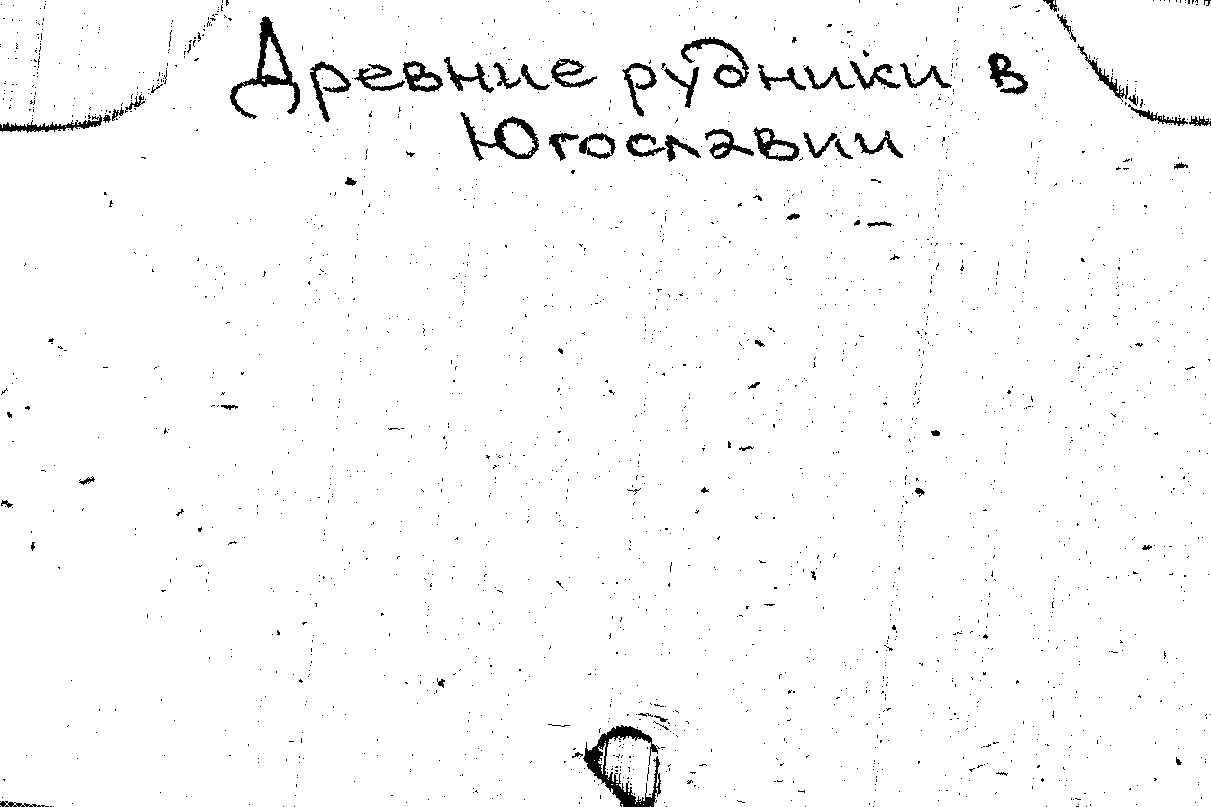 Древние рудники в
Югославии